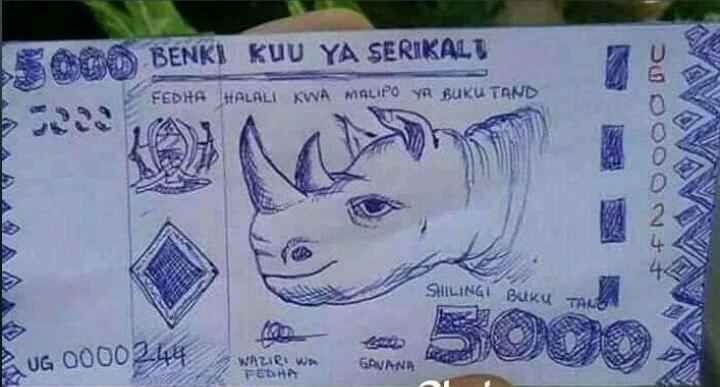 5000 BENKI KUU YA SERIKALI
FEDHA HALALI KWA MALIPO YA BUKU TANO
5000
UG 0000244
SHILINGI BUKU TANO
5000
UG 0000244
WAZIRI WA FEDHA
GAVANA